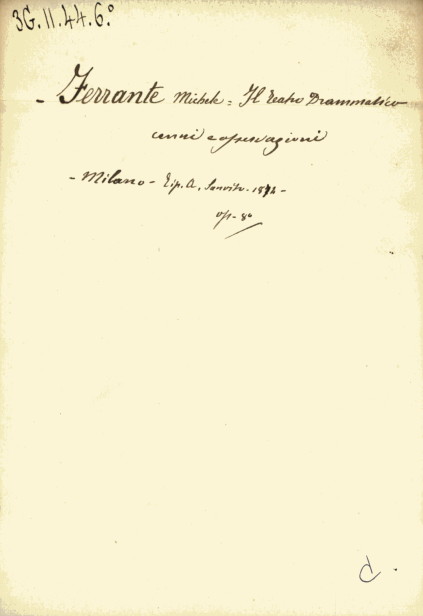 3G.II.44.6.°
- Ferrante Michele = Il Teatro Drammatico
cenni e osservazioni
- Milano - Tip. A. Sanvito. 1874 -
op - 8°
C